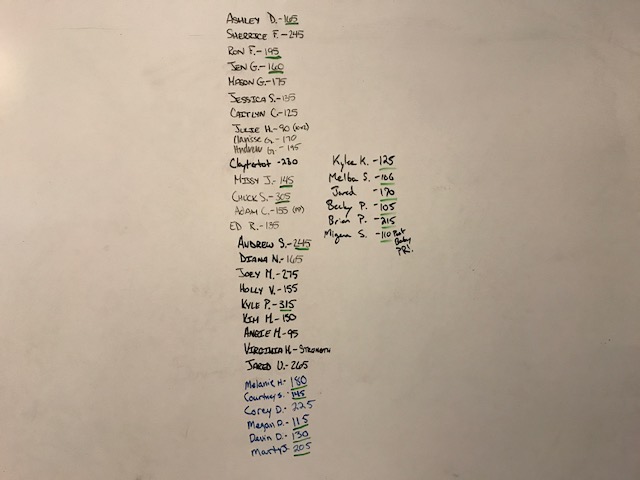 ASHLEY D.-165
SHERRICE F.-245
RON F.-195
JEN G.-160
MASON G.-175
JESSICA S.-135
CAITLYN C-125
JULIE H.-90
Clarisse G.-170
Andrew G.-195
Claytertot -230
MISSY J.-145
CHUCK S.-305
ADAM C.-155
ED R.-135
ANDREW S.-245
DIANA N.-165
JOEY M.-275
HOLLY V.-155
KYLE P.-315
KIM M-150
ANGIE M-95
VIRGINIA H-STRENGTH
JARED U.-265
Melanie H-180
Courtney S.-145
Corey D.-225
Megan D.-115
Devin D.-130
Marty J.-205
Kylee K.-125
Melba S.-106
Jared -170
Becky P.-105
Brian P.-215
S.-110 Post
Baby
PR!